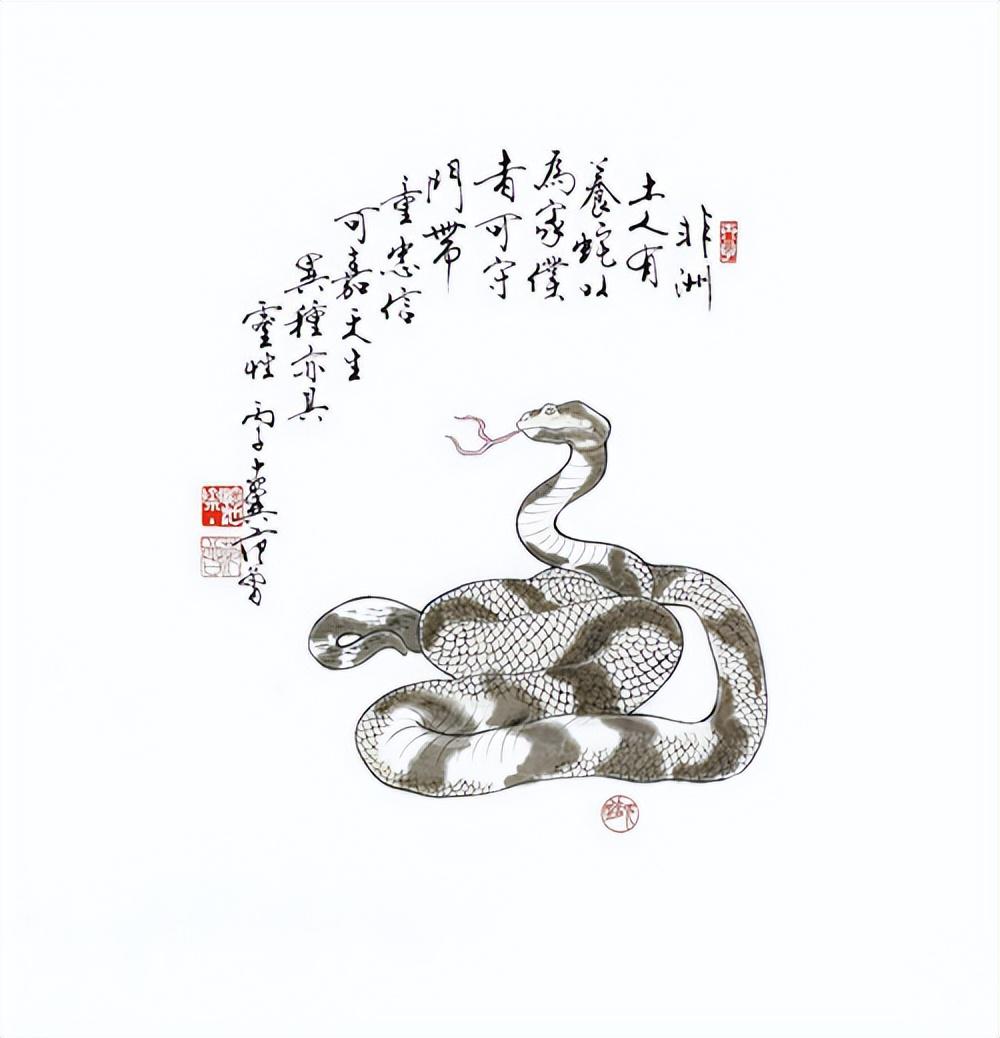 非洲
土人有
養蛇以
為家僕
者可守
門帶
重忠信
可嘉天生
異種亦具
靈性 丙子十翼范曾